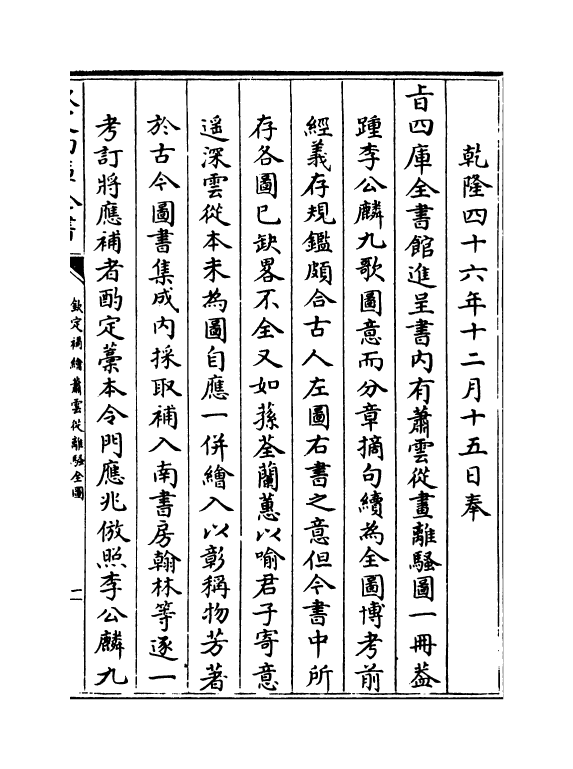 乾隆四十六年十二月十五日奉
旨四庫全書館進呈書内有蕭雲從畫離騷圖一冊葢
踵李公麟九歌圖意而分章摘句續為全圖博考前
經義存規鑑頗合古人左圖右書之意但今書中所
存各圖已缺畧不全又如蓀荃蘭蕙以喻君子寄意
遥深雲從本未為圖自應一併繪入以彰稱物芳著
於古今圖書集成内採取補入南書房翰林等逐一
考訂將應補者酌定藁本令門應兆倣照李公麟九
欽定補繪蕭雲從離騷全圖
二